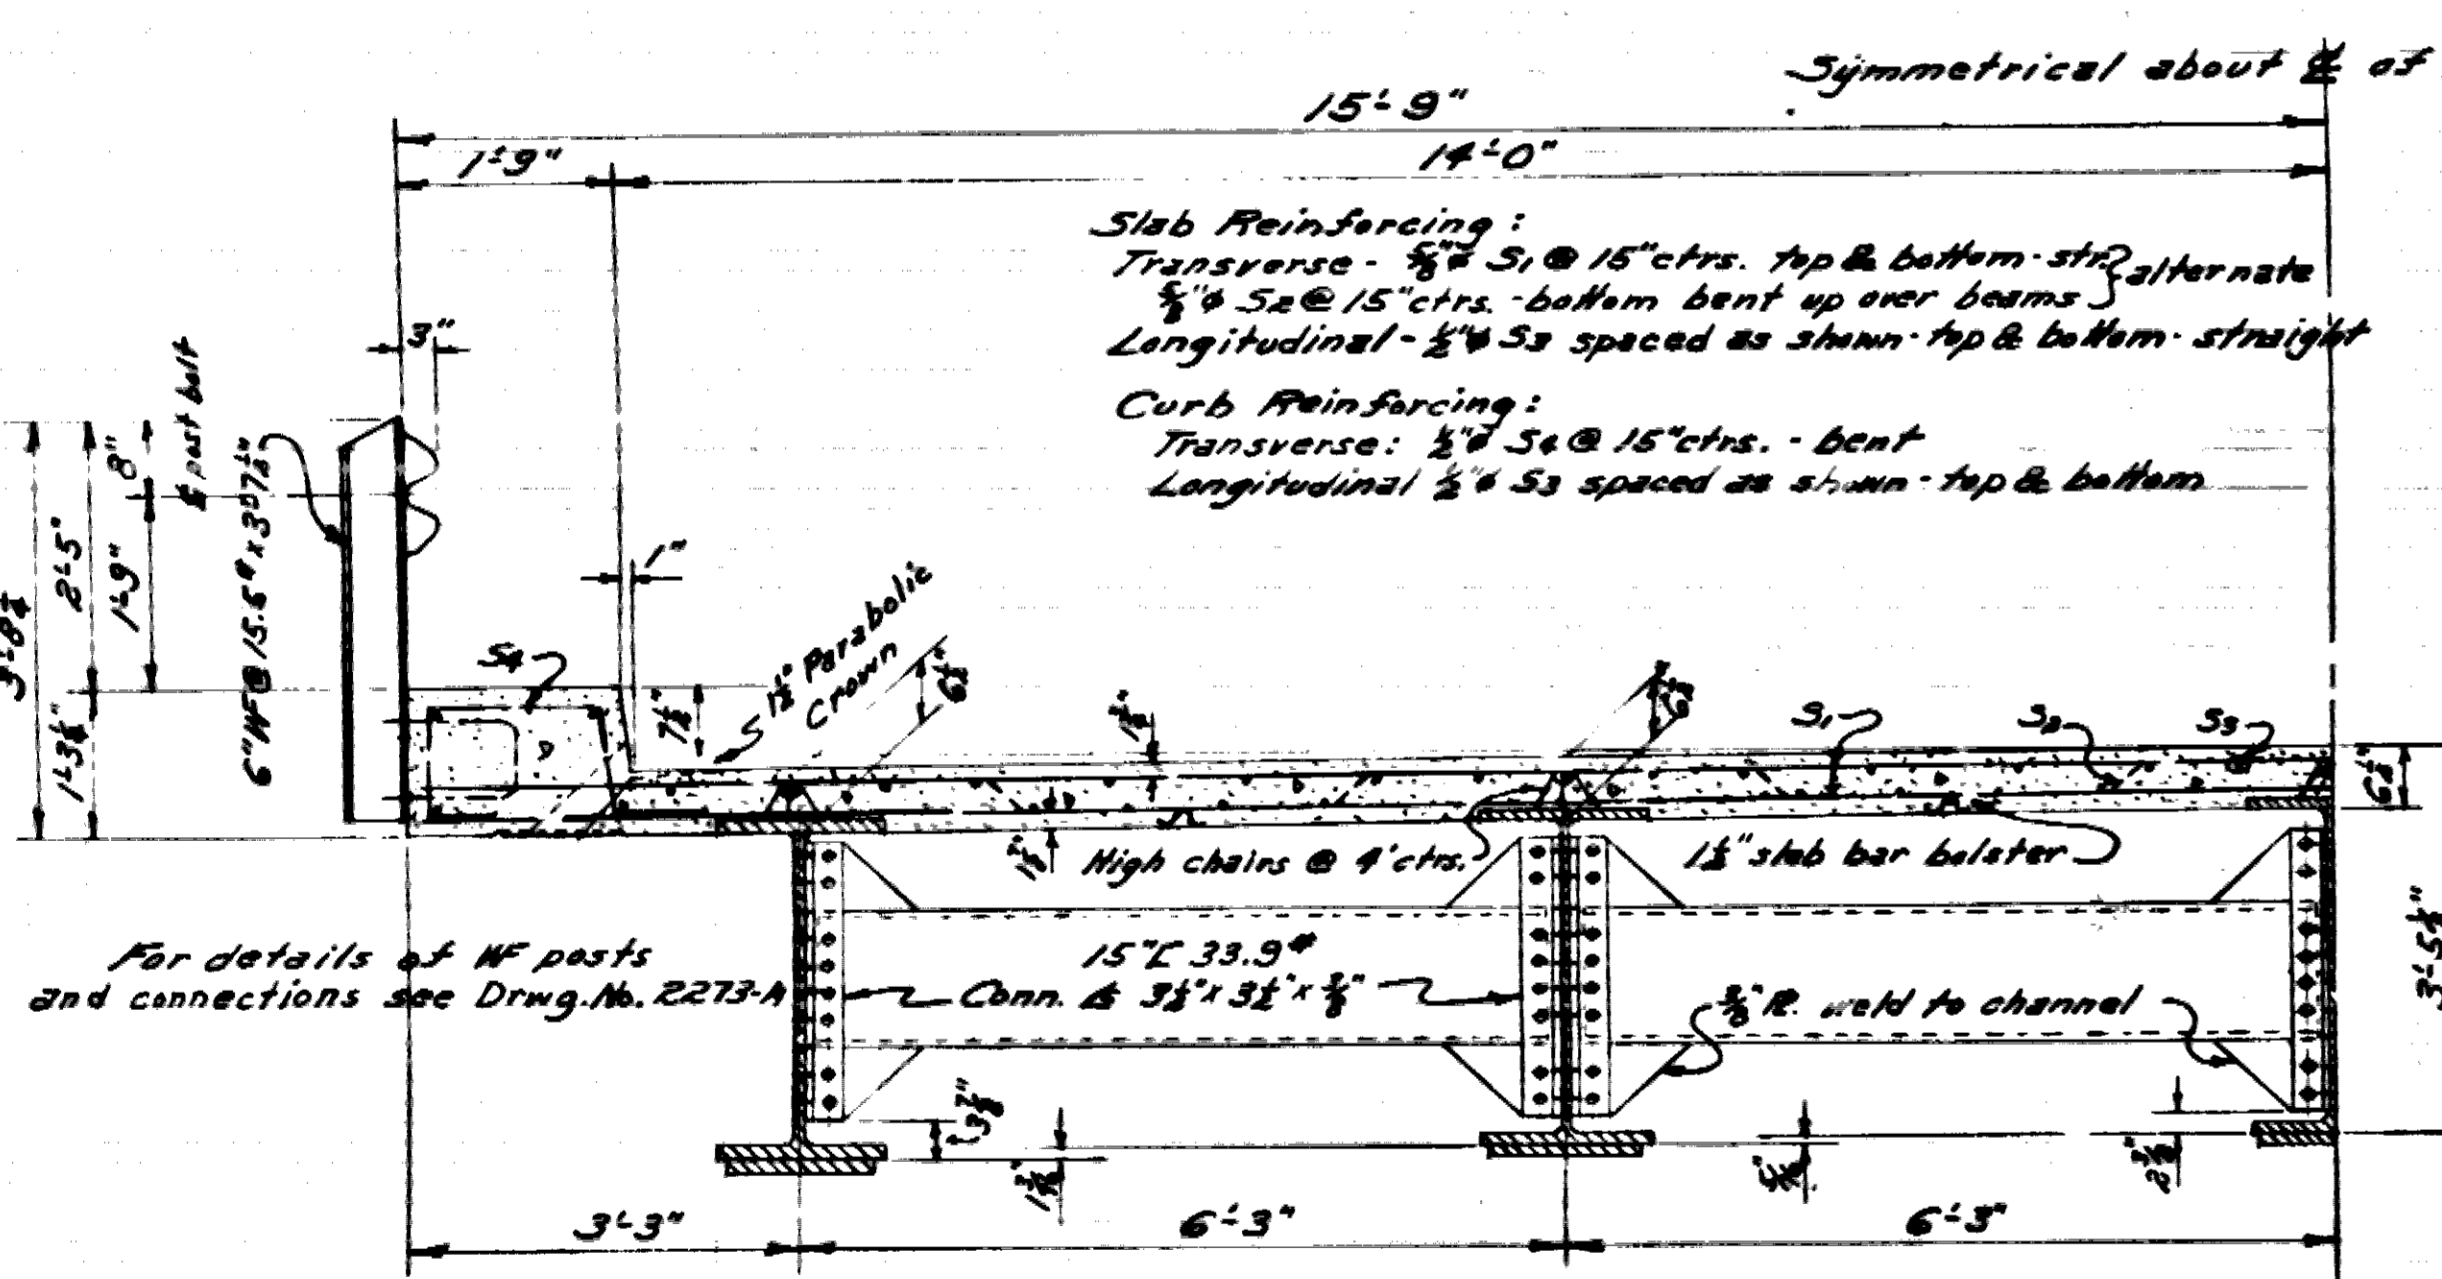 Symmetrical about ℄ of
15'-9"
1'-9"
14'-0"
Slab Reinforcing:
Transverse - 5/8"ϕ S1 @ 15"ctrs. top & bottom - str.
5/8"ϕ S2 @ 15"ctrs. - bottom bent up over beams
alternate
Longitudinal - 1/2"ϕ S3 spaced as shown - top & bottom - straight
Curb Reinforcing:
Transverse: 1/2"ϕ S4 @ 15"ctrs. - bent
Longitudinal 1/2"ϕ S3 spaced as shown - top & bottom
3"
℄ post bolt
8"
2'-5"
1'-9"
6"WF@15.5#x3'-
1"
S4
1'-
7 1/2"
1 1/2" Parabolic
Crown
6 1/2"
S1
S2
S3
6 1/2"
High chairs @ 4' ctrs.
1 1/2" slab bar bolster
For details of WF posts
and connections see Drwg. No. 2273-A
15"[ 33.9#
Conn. ∠s 3 1/2" x 3 1/2" x 3/8"
3/8" ℞. weld to channel
3'-3"
6'-3"
6'-3"